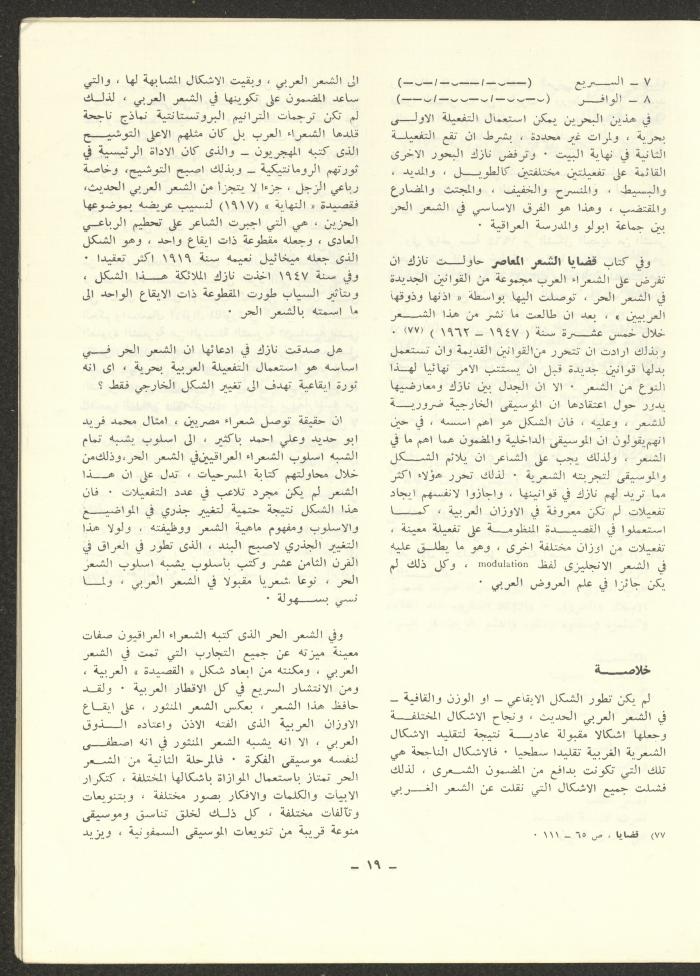 ٧ ـ الســـريع (ــ‿ــ/ــ‿ــ/ــ‿ــ)
٨ ـ الوافـــر (‿ــ‿ــ/‿ــ‿ــ/‿ــ)
في هذين البحرين يمكن استعمال التفعيلة الاولـــى
بحرية ، ولمرات غير محددة ، بشرط ان تقع التفعيلـــة
الثانية في نهاية البيت ٠ وترفض نازك البحور الاخرى
القائمة على تفعيلتين مختلفتين كالطويـــل ، والمديد ،
والبسيط ، والمنسرح والخفيف ، والمجتث والمضارع
والمقتضب ، وهذا هو الفرق الاساسي في الشعر الحر
بين جماعة ابولو والمدرسة العراقية ٠
وفي كتاب قضايا الشعر المعاصر حاولـــت نازك ان
تفرض على الشعراء العرب مجموعة من القوانين الجديدة
في الشعر الحر ، توصلت اليها بواسطة « اذنها وذوقها
العربيين » ، بعد ان طالعت ما نشر من هذا الشـــعر
خلال خمس عشـــرة سنة ( ١٩٤٧ ـ ١٩٦٢ ) (٧٧) ٠
وبذلك ارادت ان تتحرر من القوانين القديمة وان تستعمل
بدلها قوانين جديدة قبل ان يستتب الامر نهائيا لهـــذا
النوع من الشعر ٠ الا ان الجدل بين نازك ومعارضيها
يدور حول اعتقادها ان الموسيقى الخارجية ضروريـــة
للشعر ، وعليه ، فان الشكل هو اهم اسسه ، في حين
انهم يقولون ان الموسيقى الداخلية والمضمون هما اهم ما في
الشعر ، ولذلك يجب على الشاعر ان يلائم الشـــكل
والموسيقى لتجربته الشعرية ٠ لذلك تحرر هؤلاء اكثر
مما تريد لهم نازك في قوانينها ، واجازوا لانفسهم ايجاد
تفعيلات لم تكن معروفة في الاوزان العربية ، كمـــا
استعملوا في القصيـــدة المنظومـــة على تفعيلة معينة ،
تفعيلات من اوزان مختلفة اخرى ، وهو ما يطلـــق عليه
في الشعر الانجليزى لفظ modulation ، وكل ذلك لم
يكن جائزا في علم العروض العربي ٠
خلاصـــة
لم يكن تطور الشكل الايقاعي ـ او الوزن والقافية ـ
في الشعر العربي الحديث ، ونجاح الاشكال المختلفـــة
وجعلها اشكالا مقبولة عاديـــة نتيجة لتقليد الاشكال
الشعرية الغربية تقليدا سطحيا ٠ فالاشكال الناجحة هي
تلك التي تكونت بدافع من المضمون الشـــعرى ، لذلك
فشلت جميع الاشكال التي نقلت عن الشعر الغـــربي
٧٧) قضايا ، ص ٦٥ ـ ١١١ ٠
الى الشعر العربي ، وبقيت الاشكال المشابهة لها ، والتي
ساعد المضمون على تكوينها في الشعر العربي ، لذلـــك
لم تكن ترجمات الترانيم البروتستانتية نماذج ناجحة
قلدها الشعراء العرب بل كان مثلهم الاعلى التوشيـــح
الذى كتبه المهجريون ـ والذى كان الاداة الرئيسية في
ثورتهم الرومانتيكية ـ وبذلك اصبح التوشيح ، وخاصة
رباعي الزجل ، جزءا لا يتجزأ من الشعر العربي الحديث،
فقصيدة « النهاية » (١٩١٧) لنسيب عريضه بموضوعها
الحزين ، هي التي اجبرت الشاعر على تحطيم الرباعـــي
العادى ، وجعله مقطوعة ذات ايقاع واحد ، وهو الشكل
الذى جعله ميخائيل نعيمه سنة ١٩١٩ اكثر تعقيدا ٠
وفي سنة ١٩٤٧ اخذت نازك الملائكة هـــذا الشكل ،
وبتأثير السياب طورت المقطوعة ذات الايقاع الواحد الى
ما اسمته بالشعر الحر ٠
هل صدقت نازك في ادعائها ان الشعر الحر فـــي
اساسه هو استعمال التفعيلة العربية بحرية ، اى انه
ثورة ايقاعية تهدف الى تغيير الشكل الخارجي فقط ؟
ان حقيقة توصل شعراء مصريين ، امثال محمد فريد
ابو حديد وعلي احمد باكثير ، الى اسلوب يشبه تمام
الشبه اسلوب الشعراء العراقيين في الشعر الحر، وذلك من
خلال محاولتهم كتابة المسرحيات ، تدل على ان هـــذا
الشعر لم يكن مجرد تلاعب في عدد التفعيلات ٠ فان
هذا الشكل نتيجة حتمية لتغيير جذري في المواضيـــع
والاسلوب ومفهوم ماهية الشعر ووظيفته ، ولولا هذا
التغيير الجذري لاصبح البند ، الذى تطور في العراق في
القرن الثامن عشر وكتب بأسلوب يشبه اسلوب الشعر
الحر ، نوعا شعريا مقبولا في الشعر العربي ، ولمـــا
نسي بســـهولة ٠
وفي الشعر الحر الذى كتبه الشعراء العراقيون صفات
معينة ميزته عن جميع التجارب التي تمت في الشعر
العربي ، ومكنته من ابعاد شكل « القصيدة » العربية ،
ومن الانتشار السريع في كل الاقطار العربية ٠ ولقـــد
حافظ هذا الشعر ، بعكس الشعر المنثور ، على ايقـــاع
الاوزان العربية الذى الفته الاذن واعتاده الـــذوق
العربي ، الا انه يشبه الشعر المنثور في انه اصطفـــى
لنفسه موسيقى الفكرة ٠ فالمرحلة الثانية من الشـــعر
الحر تمتاز باستعمال الموازاة باشكالها المختلفة ، كتكرار
الابيات والكلمات والافكار بصور مختلفة ، وبتنويعات
وتآلفات مختلفة ، كل ذلـــك لخلق تناسق وموسيقى
منوعة قريبة من تنويعات الموسيقى السمفونية ، ويزيد
ـ ١٩ ـ